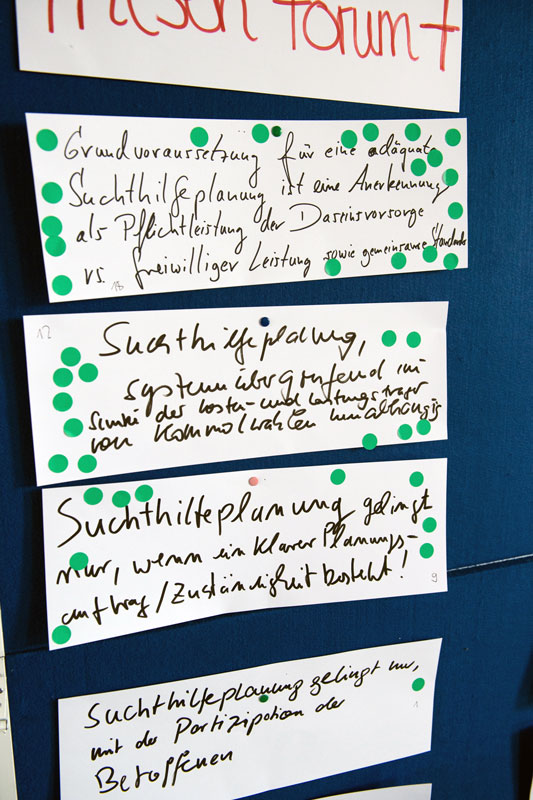 Thesen Forum 7
Grundvoraussetzung für eine adäquate
Suchthilfeplanung ist eine Anerkennung
als Pflichtleistung der Daseinsvorsorge
vs. freiwilliger Leistung sowie gemeinsame Standards
18
12
Suchthilfeplanung,
systemübergreifend im
Sinne der Kosten- und Leistungsträger
von Kommunalwahlen unabhängig
Suchthilfeplanung gelingt
nur, wenn ein klarer Planungs-
auftrag/Zuständigkeit besteht!
9
Suchthilfeplanung gelingt nur,
mit der Partizipation der
Betroffenen
1